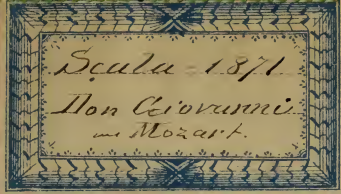 Scala 1871
Don Giovanni
Mozart.